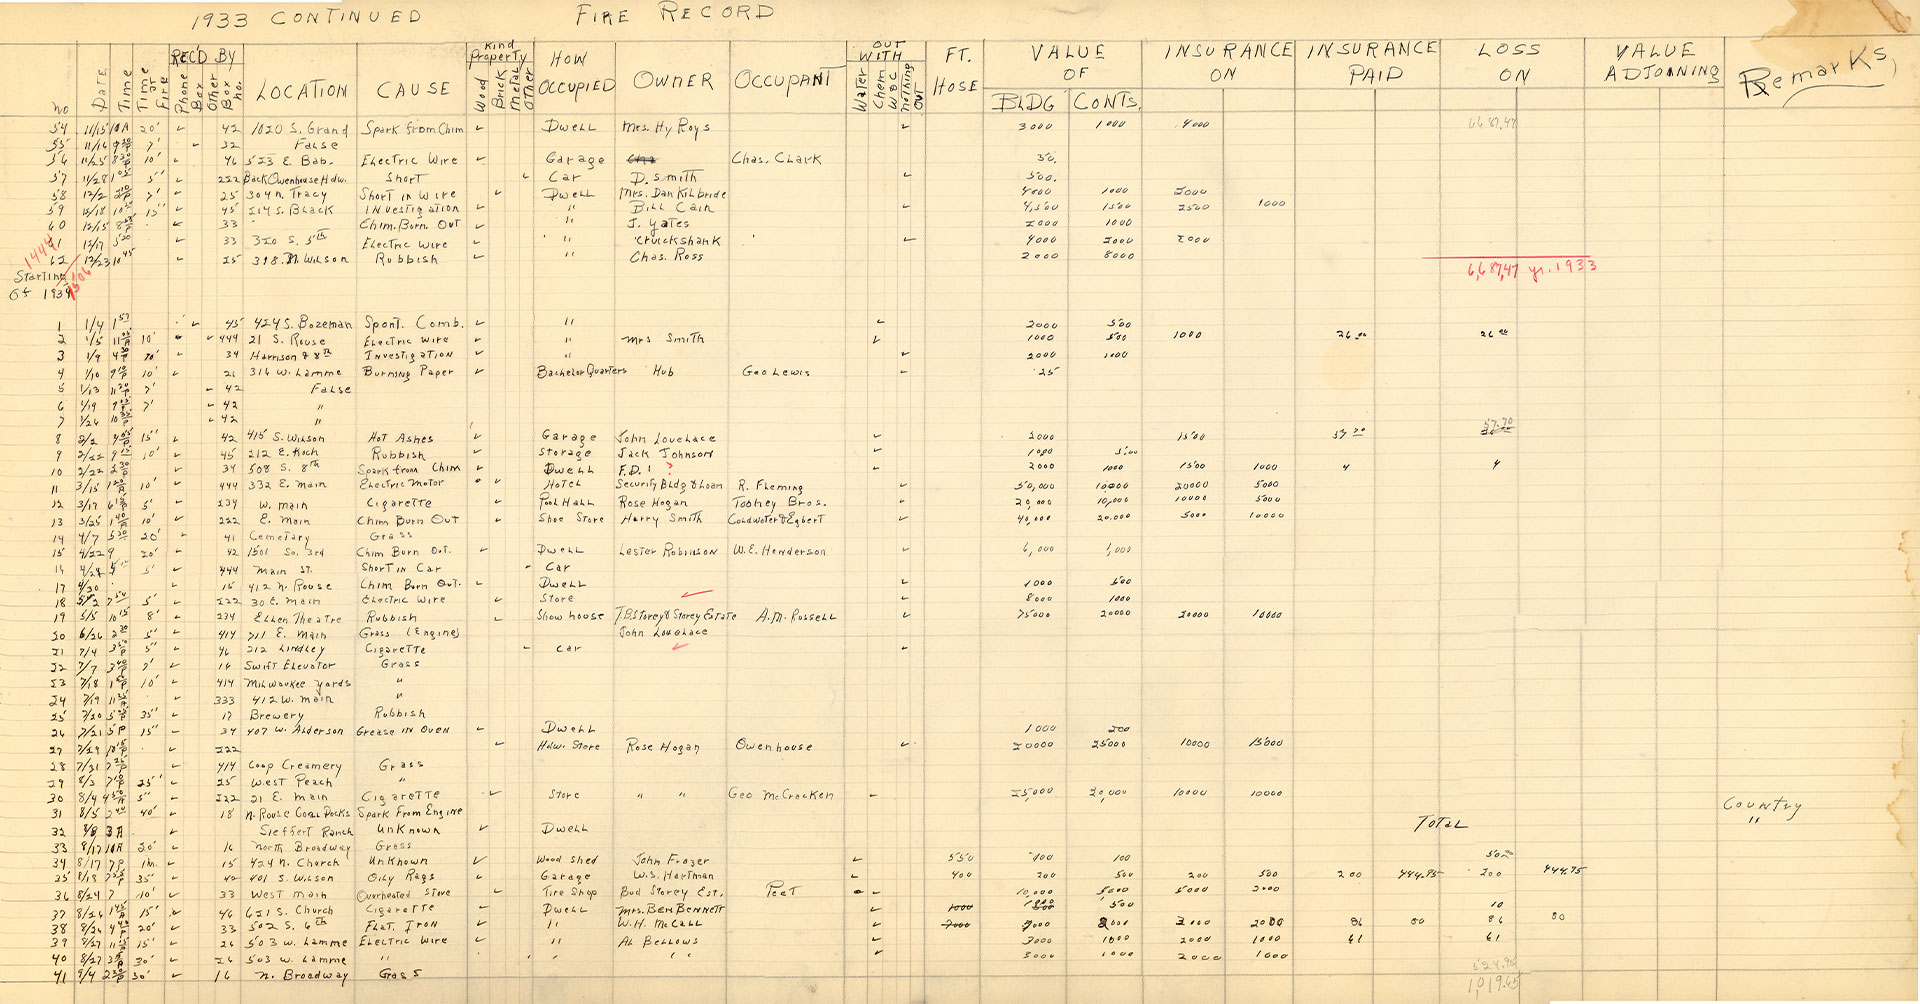 1933 CONTINUED FIRE RECORD
no DATE Time Time at Fire REC'D BY Phone Box Other Box no. LOCATION CAUSE Kind Property Wood Brick Metal Other HOW OCCUPIED OWNER OCCUPANT OUT WITH Water Chem W&C nothing Out FT. HOSE VALUE OF BLDG CONTS. INSURANCE ON INSURANCE PAID LOSS ON VALUE ADJOINING Remarks
54 11/15 10A 20' 42 1020 S. Grand Spark from Chim Dwell Mrs. Hy Roys 3000 1000 4000 6687.47
55 11/16 7' 32 False
56 11/25 10' 46 523 E. Bab. Electric Wire Garage Chas. Clark 50.
57 11/28 5" 222 Back Owenhouse Hdw. Short Car D. Smith 500.
58 12/2 7' 25 304 N. Tracy Short in Wire Dwell Mrs. Dan Kilbride 4000 1000 2000
59 15" 45 214 S. Black Investigation " Bill Cain 4,500 1500 2500 1000
60 12/15 33 Chim. Burn. Out " J. Yates 2000 1000
61 12/17 33 320 S. 5th Electric Wire " Cruickshank 4000 2000 2000
62 12/23 10 45 25 318 N. Wilson Rubbish " Chas. Ross 2000 8000
1444
Starting 1506 6,687,47 yr. 1933
of 1934
1 1/4 1 57 45 424 S. Bozeman Spont. Comb. " 2000 500
2 1/5 10' 444 21 S. Rouse Electric Wire " Mrs Smith 1000 500 1000 26.00 26.00
3 1/9 34 Harrison & 8th Investigation " 2000 1000
4 1/10 10' 21 316 W. Lamme Burning Paper Bachelor Quarters Hub Geo Lewis 25
5 1/13 7' 42 False
6 1/19 7' 42 "
7 1/26 42 "
8 2/2 15" 42 415 S. Wilson Hot Ashes Garage John Lovelace 2000 1500 57.70 57.70
9 2/22 10' 45 212 E. Koch Rubbish Storage Jack Johnson 1000 500
10 2/22 34 508 S. 8th Spark from Chim Dwell F.D. ? 2000 1000 1500 1000 4 4
11 3/15 10' 444 332 E. Main Electric Motor Hotel Security Bldg & Loan R. Fleming 50,000 10000 20000 5000
12 3/17 5" 234 W. Main Cigarette Pool Hall Rose Hogan Toohey Bros. 20,000 10,000 10000 5000
13 3/25 10' 222 E. Main Chim Burn Out Shoe Store Harry Smith Coldwater & Egbert 40,000 20.000 5000 10000
14 4/7 20' 41 Cemetary Grass
15 4/22 9 20' 42 1501 So. 3rd Chim Burn Out. Dwell Lester Robinson W.E. Henderson 6,000 1,000
16 4/28 5' 444 Main St. Short in Car Car
17 4/30 15 412 N. Rouse Chim Burn Out. Dwell 1000 500
18 5/2 5' 222 30 E. Main Electric Wire Store 8000 1000
19 5/5 10 15 8' 234 Ellen Theatre Rubbish Show house T.B. Storey & Storey Estate A.M. Russell 75000 20000 20000 10000
20 6/26 5" 414 711 E. Main Grass (Engine) John Lovelace
21 7/4 5" 46 212 Lindley Cigarette Car
22 7/7 7' 16 Swift Elevator Grass
23 7/18 10' 414 Milwaukee Yards "
24 7/19 333 412 W. Main "
25 7/20 35' 17 Brewery Rubbish
26 7/21 5P 15" 34 407 W. Alderson Grease in Oven Dwell 1000 200
27 7/29 222 Hdw. Store Rose Hogan Owenhouse 20000 25000 10000 15000
28 7/31 414 Coop Creamery Grass
29 8/3 25' 25 West Peach "
30 8/4 5" 222 21 E. Main Cigarette Store " " Geo McCracken 25,000 20,000 10000 10000
31 8/5 40' 18 N. Rouse Coal Docks Spark From Engine Country
32 8/8 3A Sieffert Ranch Unknown Dwell Total "
33 8/17 10A 20' 16 North Broadway Grass
34 8/17 7P 1hr. 15 424 N. Church Unknown Wood Shed John Frazer 550 400 100 50.00
35 8/18 35' 42 401 S. Wilson Oily Rags Garage W.S. Hartman 400 200 500 200 500 200 444.95 200 444.95
36 8/24 7 10' 33 West Main Overheated Stove Tire Shop Bud Storey Est. Peet 10,000 5000 5000 2000
37 8/26 15" 46 621 S. Church Cigarette Dwell Mrs. Ben Bennett 1000 500 10
38 8/26 20' 33 502 S. 6th Flat. Iron " W.H. McCall 2000 2000 3000 2000 86 80 86 80
39 8/27 15' 26 503 W. Lamme Electric Wire " Al Bellows 3000 1000 2000 1000 61 61
40 8/27 30' 26 503 W. Lamme " " " " 3000 1000 2000 1000
41 9/4 30' 16 N. Broadway Grass 524.95
1,019.65